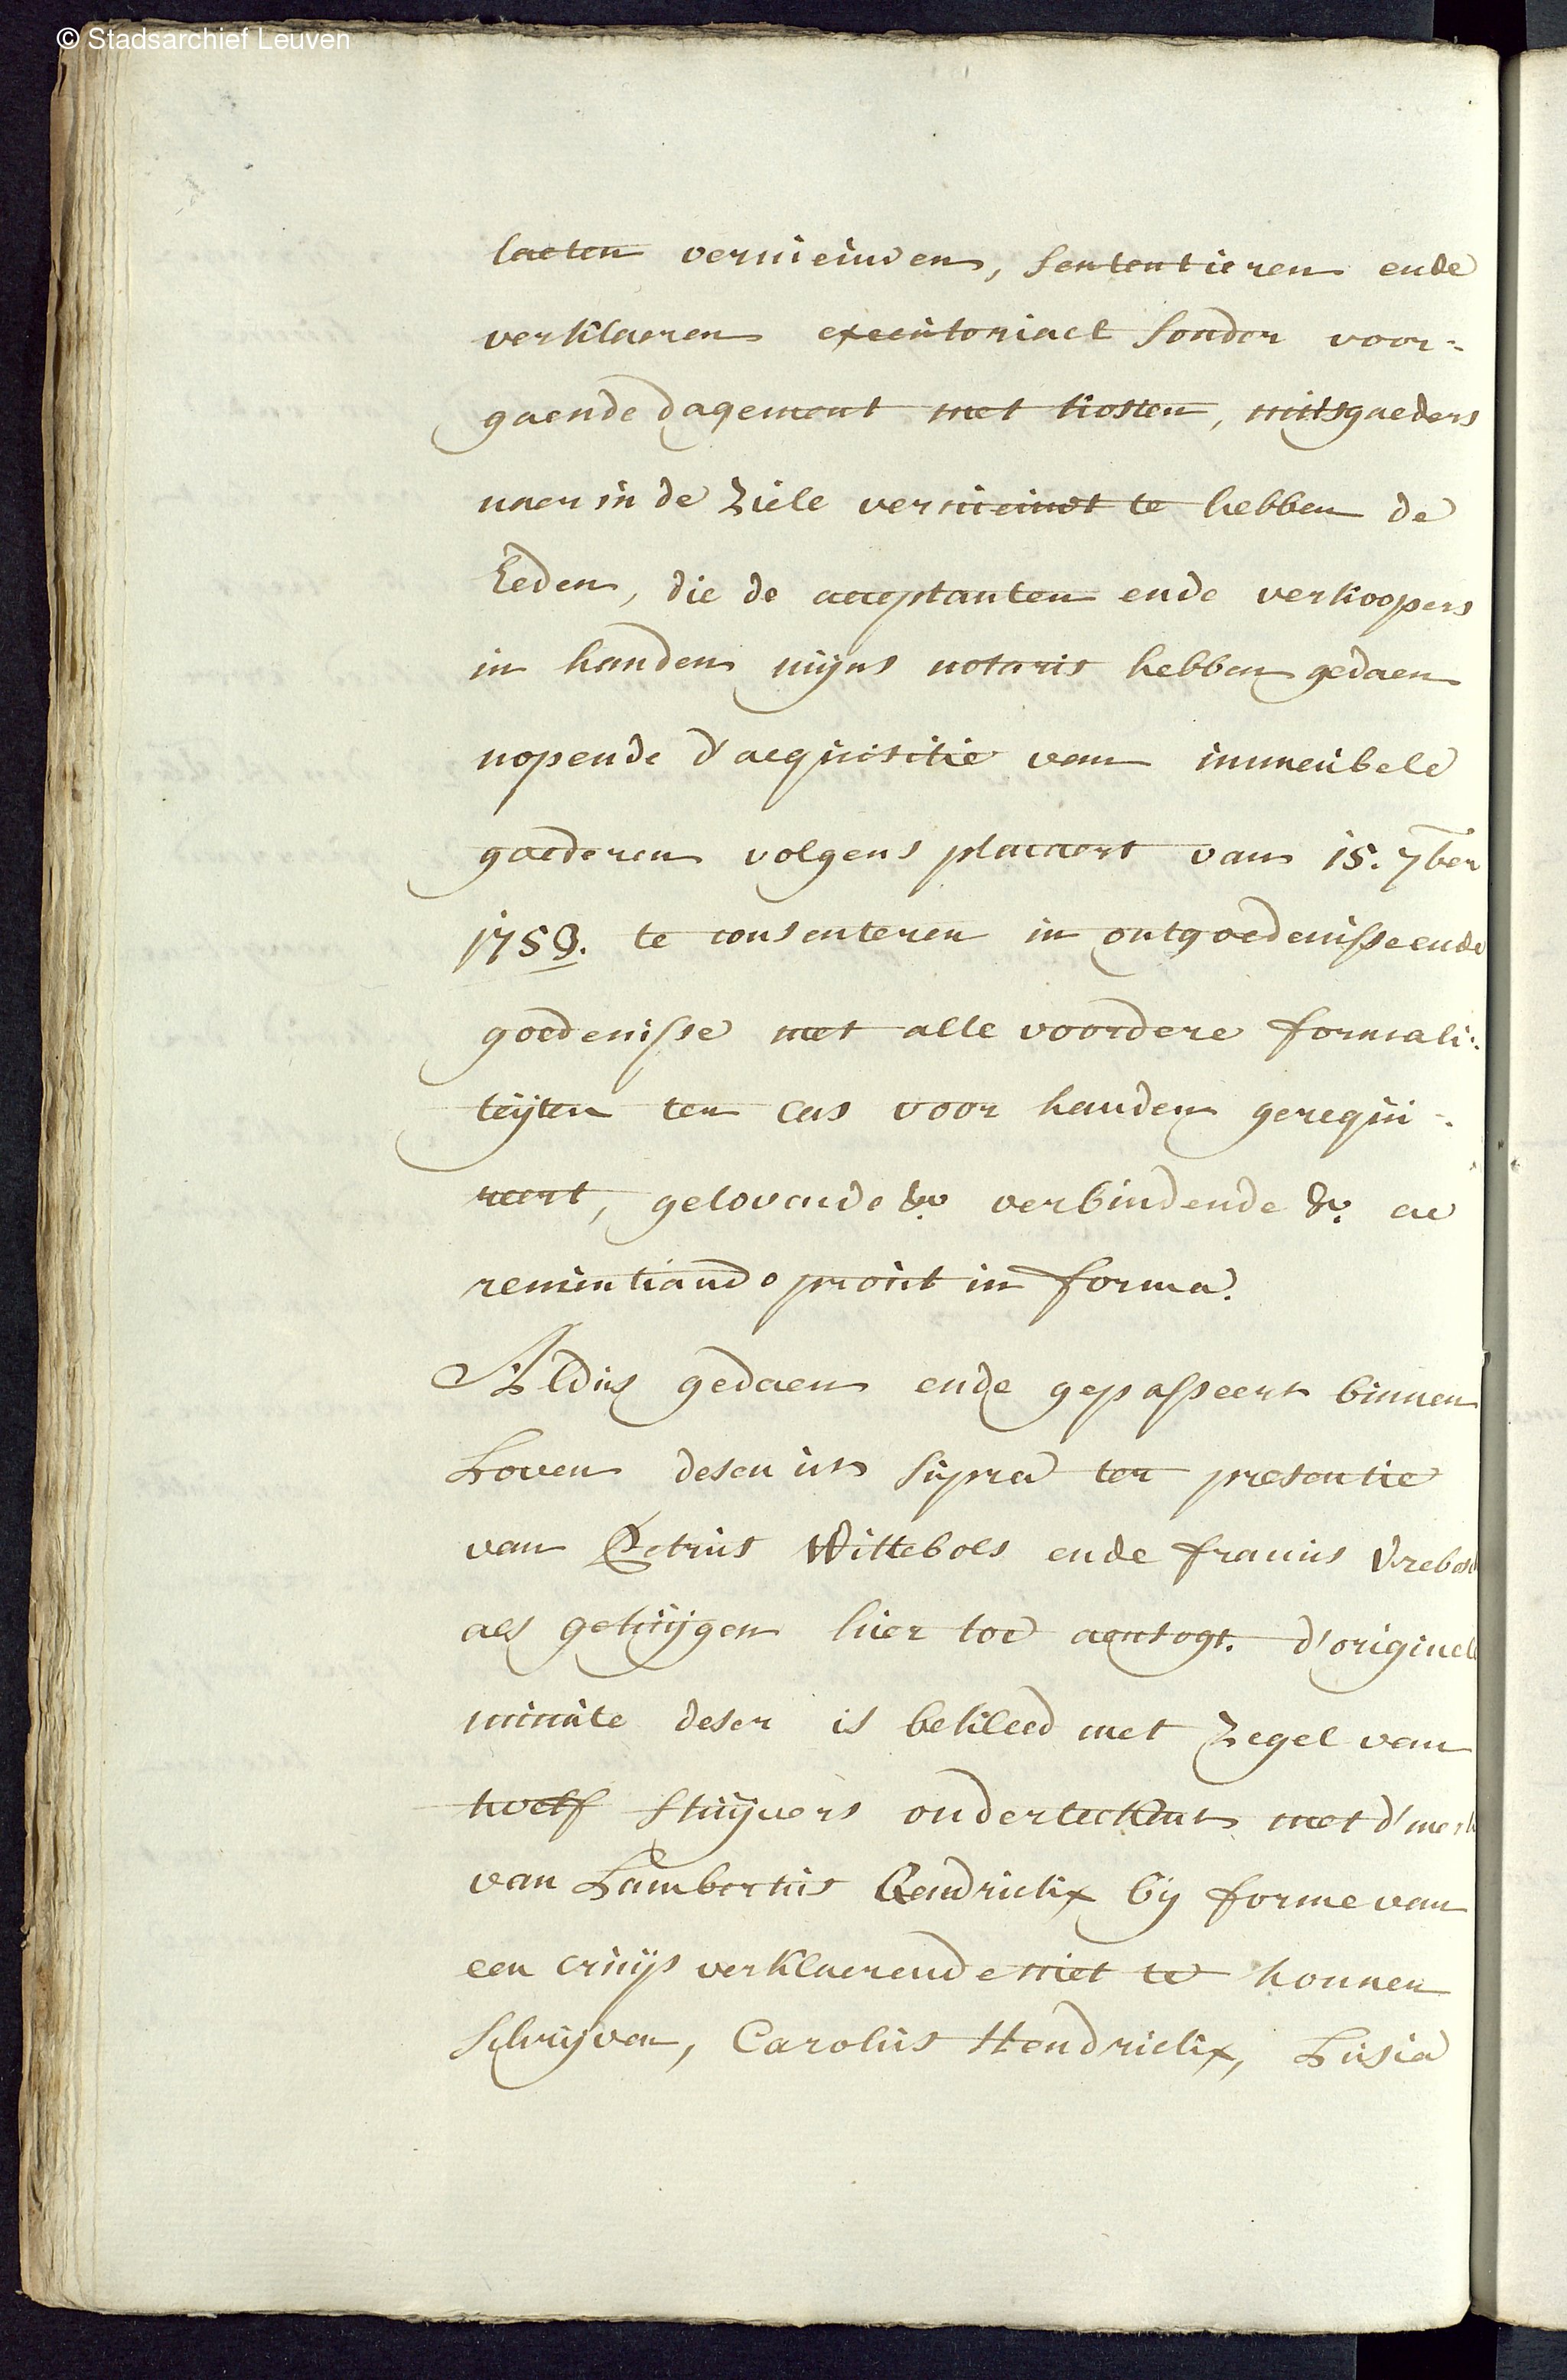 © Stadsarchief Leuven
laeten vernieuwen, sententieren ende
verklaeren executoriael sonder voor-
gaende dagement met kosten, mitsgaeders
naer in de Ziele vernieuwt te hebben de
Eeden, die de acceptanten ende verkoopers
in handen mijns notaris hebben gedaen
nopende d'acquisitie van immeubele
goederen volgens placcaert van 15. 7ber
1753. te consenteren in ontgoedenisse ende
goedenisse met alle voordere formali-
teijten ten cas voor handen gerequi-
reert, gelovende &a verbindende &a ac
renuntiando prout in forma.
Aldus gedaen ende gepasseert binnen
Loven desen uts supra ter presentie
van Petrus Wittebols ende francus Vrebos
als getuijgen hier toe aensogt. d'origineel
minute deser is bekleed met Zegel van
twelf stuijvers onderteckent met d'merk
van Lambertus Hendrickx bij forme van
een cruijs verklaerende niet te konnen
schrijven, Carolus Hendrickx, Lusia